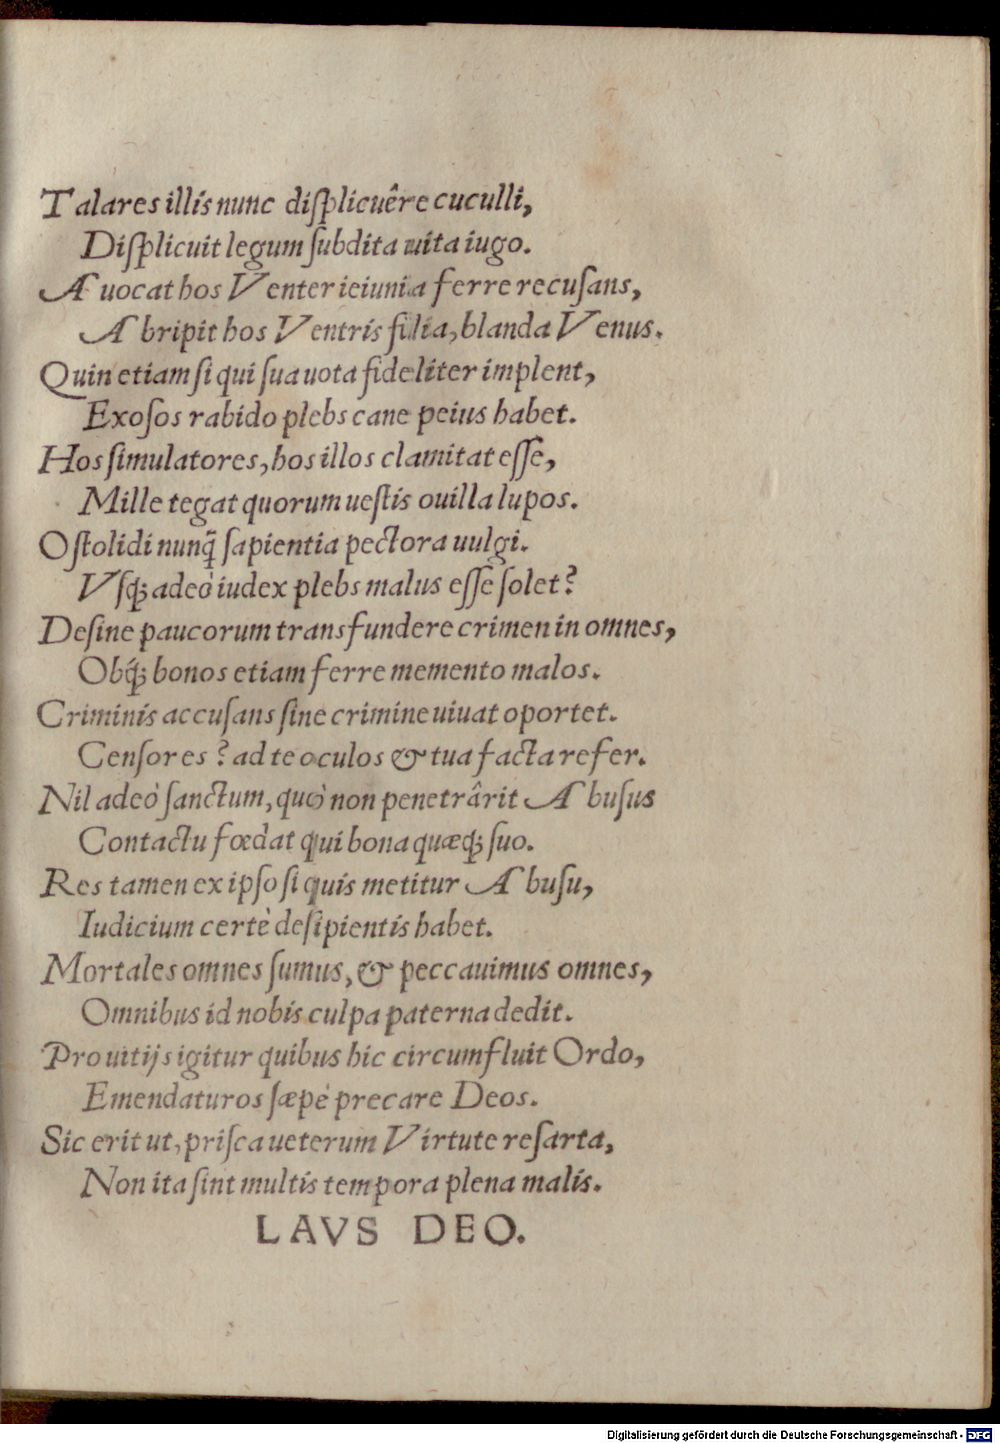 Talares illis nunc diſplicuêre cuculli,
Diſplicuit legum ſubdita uita iugo.
Auocat hos Venter ieiunia ferre recuſans,
Abripit hos Ventris filia, blanda Venus.
Quin etiam ſi qui ſua uota fideliter implent,
Exoſos rabido plebs cane peius habet.
Hos ſimulatores, hos illos clamitat eſſe,
Mille tegat quorum ueſtis ouilla lupos.
O ſtolidi nunq̃ ſapientia pectora uulgi.
Vſq; adeò iudex plebs malus eſſe ſolet?
Deſine paucorum transfundere crimen in omnes,
Obq́; bonos etiam ferre memento malos.
Criminis accuſans ſine crimine uiuat oportet.
Cenſor es? ad te oculos & tua facta refer.
Nil adeò ſanctum, quò non penetrârit Abuſus
Contactu fœdat qui bona quæq; ſuo.
Res tamen ex ipſo ſi quis metitur Abuſu,
Iudicium certè deſipientis habet.
Mortales omnes ſumus, & peccauimus omnes,
Omnibus id nobis culpa paterna dedit.
Pro uitijs igitur quibus hic circumfluit Ordo,
Emendaturos ſæpè precare Deos.
Sic erit ut, priſca ueterum Virtute reſarta,
Non ita ſint multis tempora plena malis.
LAVS DEO.
Digitalisierung gefördert durch die Deutsche Forschungsgemeinschaft - DFG